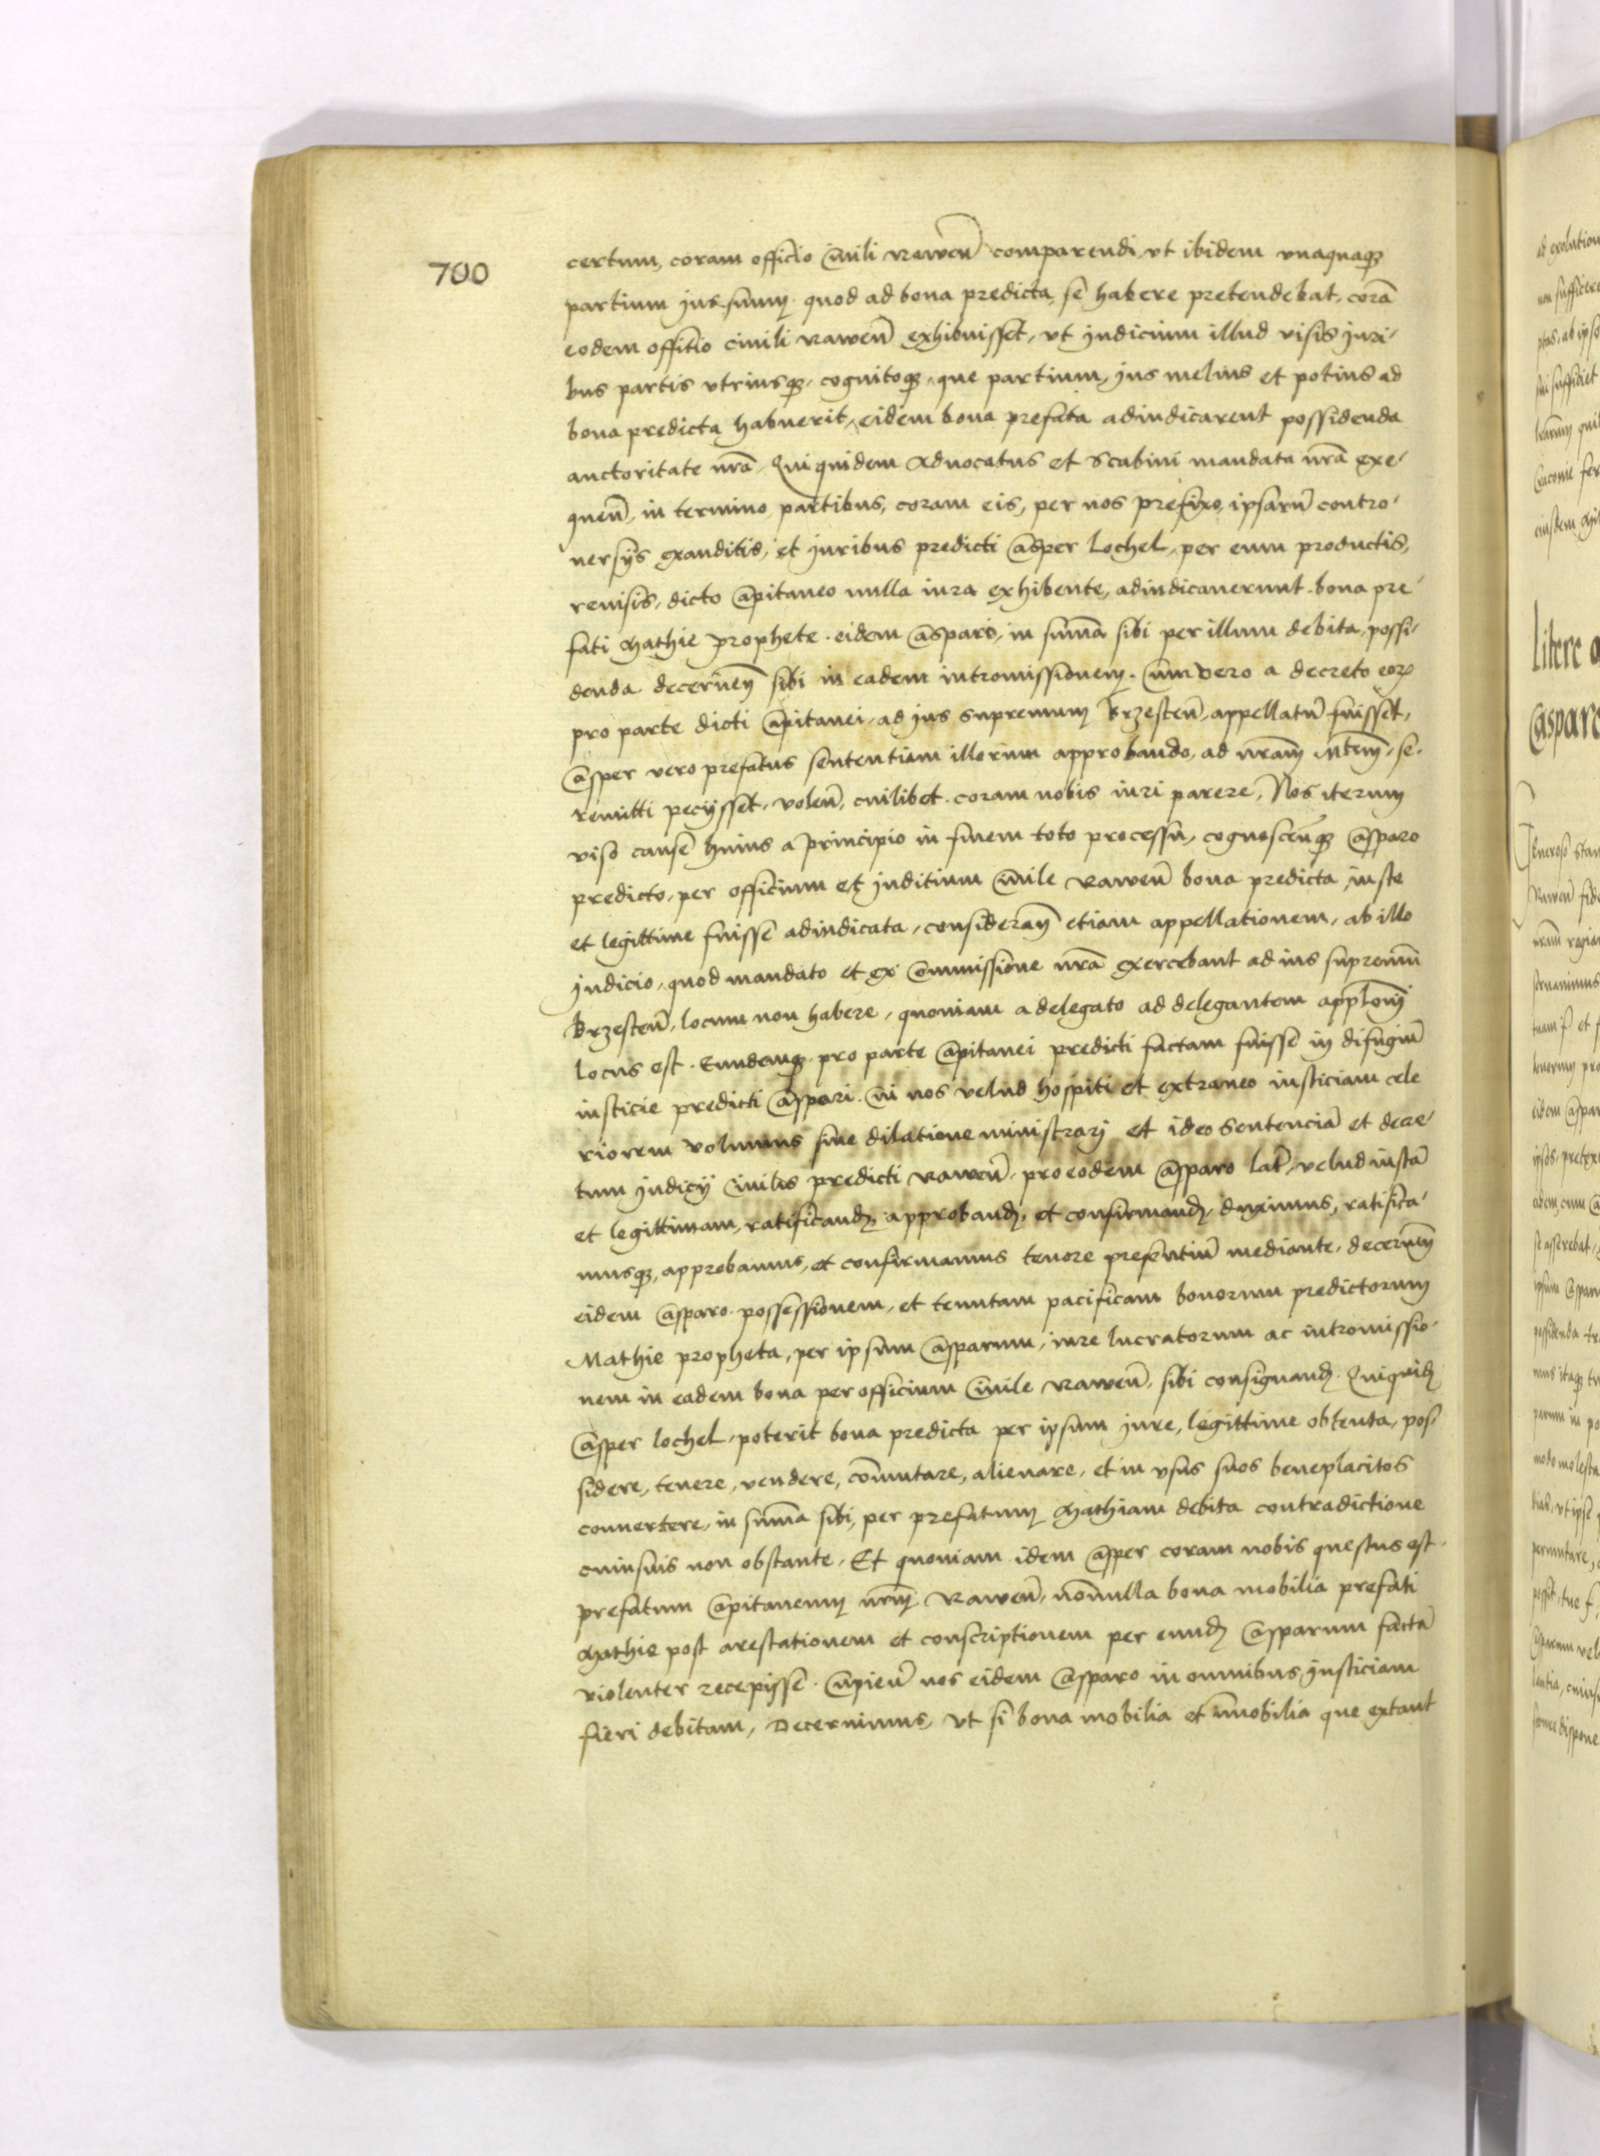 700
certum, coram officio Ciuili Rawen̄ comparendi, vt ibidem vnaquaqȝ
partium jus suum quod ad bona predicta se habere pretendebat, corā
eodem offitio ciuili Rawen̄ exhibuisset, vt judicium illud visis juri-
bus partis vtriusqȝ, cognitoqȝ, que partium, jus melius et potius ad
bona predicta habuerit, eidem bona prefata adiudicarent possidenda
auctoritate nr̄a. Qui quidem Aduocatus et Scabini mandata nr̄a exe-
quen̄, in termino partibus, coram eis, per nos prefixo, ipsarū contro-
uersijs exauditis, et juribus predicti Casper Lochel, per eum productis,
reuisis, dicto Capitaneo nulla iura exhibente, adiudicauerunt bona pre-
fati Mathie prophete eidem Casparo, in summa sibi per illum debita, possi-
denda decernen̄ sibi in eadem intromissionem. Cum vero a decreto eoꝝ
pro parte dicti Capitanei, ad jus supremum Brzesten̄, appellatū fuisset,
Casper vero prefatus sententiam illorum approbando, ad nr̄am Mtem̄, se
remitti pecijsset, volen̄, cuilibet coram nobis iuri parere, Nos iterum
viso cause huius a principio in finem toto processu, cognoscen̄qȝ Casparo
predicto, per officium et juditium Ciuile Rawen̄ bona predicta, iuste
et legittime fuisse adiudicata, consideran̄ etiam appellationem, ab illo
judicio, quod mandato et ex Commissione nr̄a exercebant ad ius supremū
Brzesten̄, locum non habere, quoniam a delegato ad delegantem applonī
locus est. Eundemqȝ pro parte Capitanei predicti factam fuisse in difugiū
iusticie predicti Caspari. Cui nos velud hospiti et extraneo iusticiam cele
riorem volumus sine dilatione ministrari et ideo Sentenciā et decre-
tum judicij Ciuilis predicti Rawen̄, pro eodem Casparo lat̄, velud iustā
et legittimam, ratificand̄, approband̄, et confirmand̄ duximus, ratifica-
musqȝ, approbamus, et confirmamus tenore presentiū mediante, decernen̄
eidem Casparo possessionem, et tenutam pacificam bonorum predictorum
Mathie propheta, per ipsum Casparum, iure lucratorum ac intromissio-
nem in eadem bona per officium Ciuile Rawen̄, sibi consignand̄. Quiquid̄
Casper Lochel, poterit bona predicta per ipsum jure, legittime obtenta, pos-
sidere, tenere, vendere, com̄utare, alienare, et in vsus suos beneplacitos
conuertere, in summa sibi, per prefatum Mathiam debita contradictione
cuiusuis non obstante. Et quoniam idem Casper coram nobis questus est
prefatum Capitaneum nr̄m Rawen̄, nonnulla bona mobilia prefati
Mathie post arestationem et conscriptionem per eund̄ Casparum factā
violenter recepisse. Cupien̄ nos eidem Casparo in omnibus, justiciam
fieri debitam, Decernimus, vt si bona mobilia et im̄obilia que extant
Litere